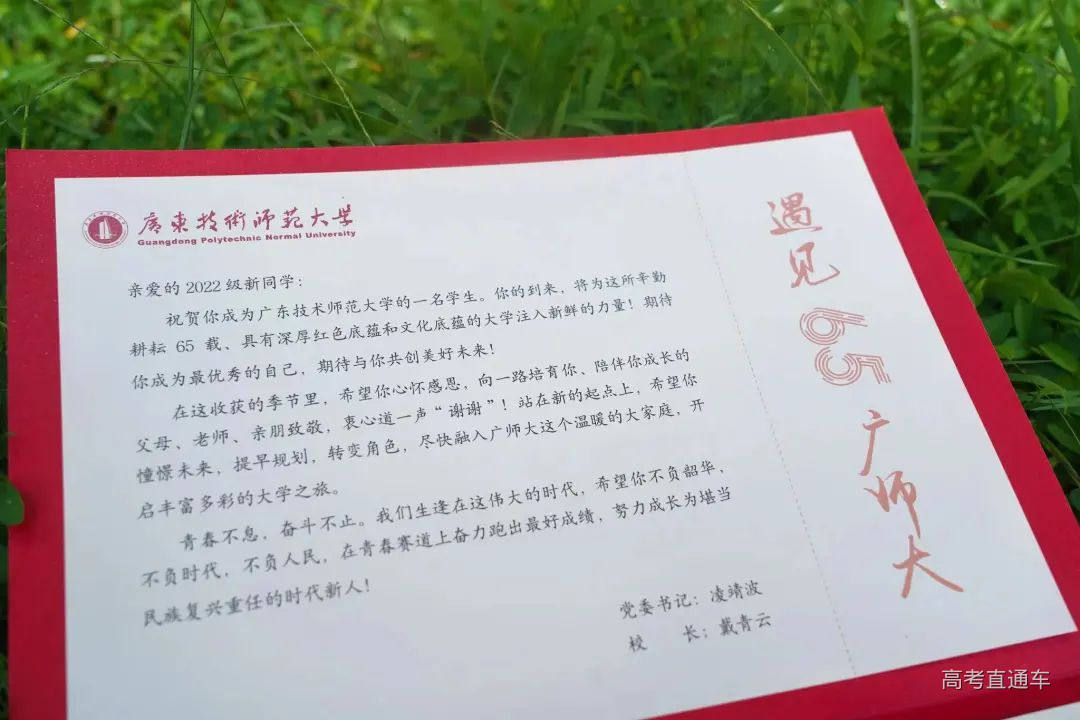 廣東技術师范大学
Guangdong Polytechnic Normal University
亲爱的2022级新同学：
祝贺你成为广东技术师范大学的一名学生。你的到来，将为这所辛勤
耕耘 65 载、具有深厚红色底蕴和文化底蕴的大学注入新鲜的力量！期待
你成为最优秀的自己，期待与你共创美好未来！
在这收获的季节里，希望你心怀感恩，向一路培育你、陪伴你成长的
父母、老师、亲朋致敬，衷心道一声“谢谢”！站在新的起点上，希望你
憧憬未来，提早规划，转变角色，尽快融入广师大这个温暖的大家庭，开
启丰富多彩的大学之旅。
青春不息，奋斗不止。我们生逢在这伟大的时代，希望你不负韶华、
不负时代，不负人民，在青春赛道上奋力跑出最好成绩，努力成长为堪当
民族复兴重任的时代新人！
党委书记：凌靖波
校　　长：戴青云
遇见65广师大
高考直通车